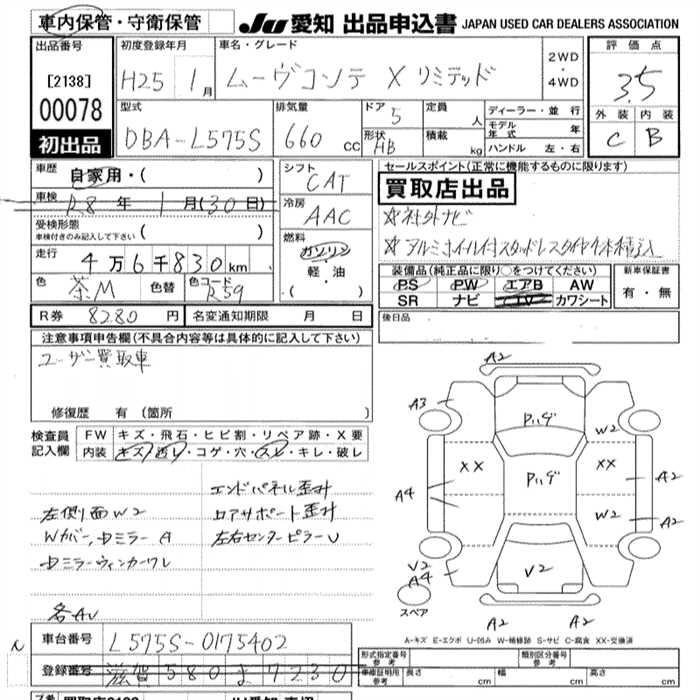 車内保管・守衛保管 JU 愛知 出品申込書 JAPAN USED CAR DEALERS ASSOCIATION
出品番号 初度登録年月 車名・グレード 評価点
[2138] H25 1月 ムーヴコンテ X リミテッド 2WD・4WD 3.5
00078 型式 排気量 ドア 定員 人 ディーラー・並行 外装 内装
初出品 DBA-L575S 660cc 5 形状 HB 積載 kg モデル年式 年 ハンドル 左・右 C B
車歴 自家用・( ) シフト CAT セールスポイント(正常に機能するものに限ります)
車検 R8年 1月(30日) 冷房 AAC 買取店出品
受検形態 ☆社外ナビ
車検付きのみ記入して下さい ( ) 燃料 ガソリン ☆アルミホイル付スタッドレスタイヤ4本積込
走行 4万6千830km 軽・油 装備品(純正品に限り○をつけてください) 新車保証書
色 茶M 色替 色コード R59 ・( ) PS PW エアB AW 有・無
SR ナビ TV カワシート
R券 8280円 名変通知期限 月 日 後日品
注意事項申告欄(不具合内容等は具体的に記入して下さい)
ユーザー買取車
修復歴 有(箇所 )
検査員記入欄 FW キズ・飛石・ヒビ割・リペア跡・X要
内装 キズ・汚レ・コゲ・穴・スレ・キレ・破レ
エンドパネル歪ミ
左側面W2 ロアサポート歪ミ
Wカバー、中ミラーA 左右センターピラーU
中ミラーウィンカーワレ
各AU
A2
A3 Pハゲ W2
XX Pハゲ XX A2
A4 W2 A2
V2 A4 V2
スペア A2 A2
A-キズ E-エクボ U-凹み W-補修跡 S-サビ C-腐食 XX-交換済
車台番号 L575S-0175402 形式指定番号 参考 類別区分番号 参考
登録番号 滋賀 580 ま 7230 車庫証明用 参考 長さ cm 幅 cm 高さ cm